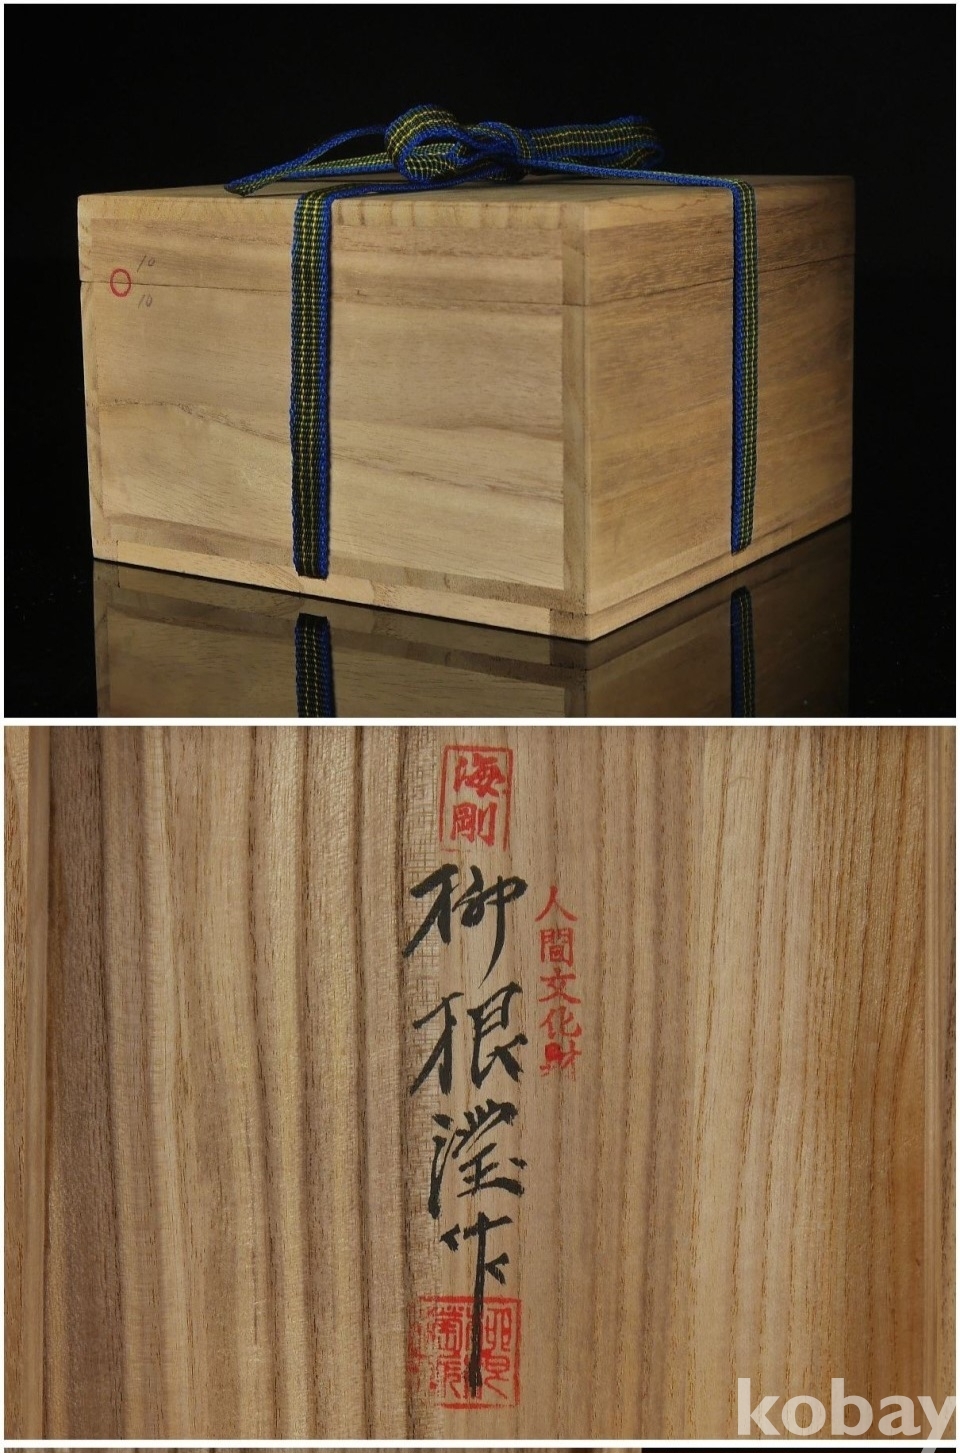 10
10
海剛
柳根瀅作
人間文化財
kobay